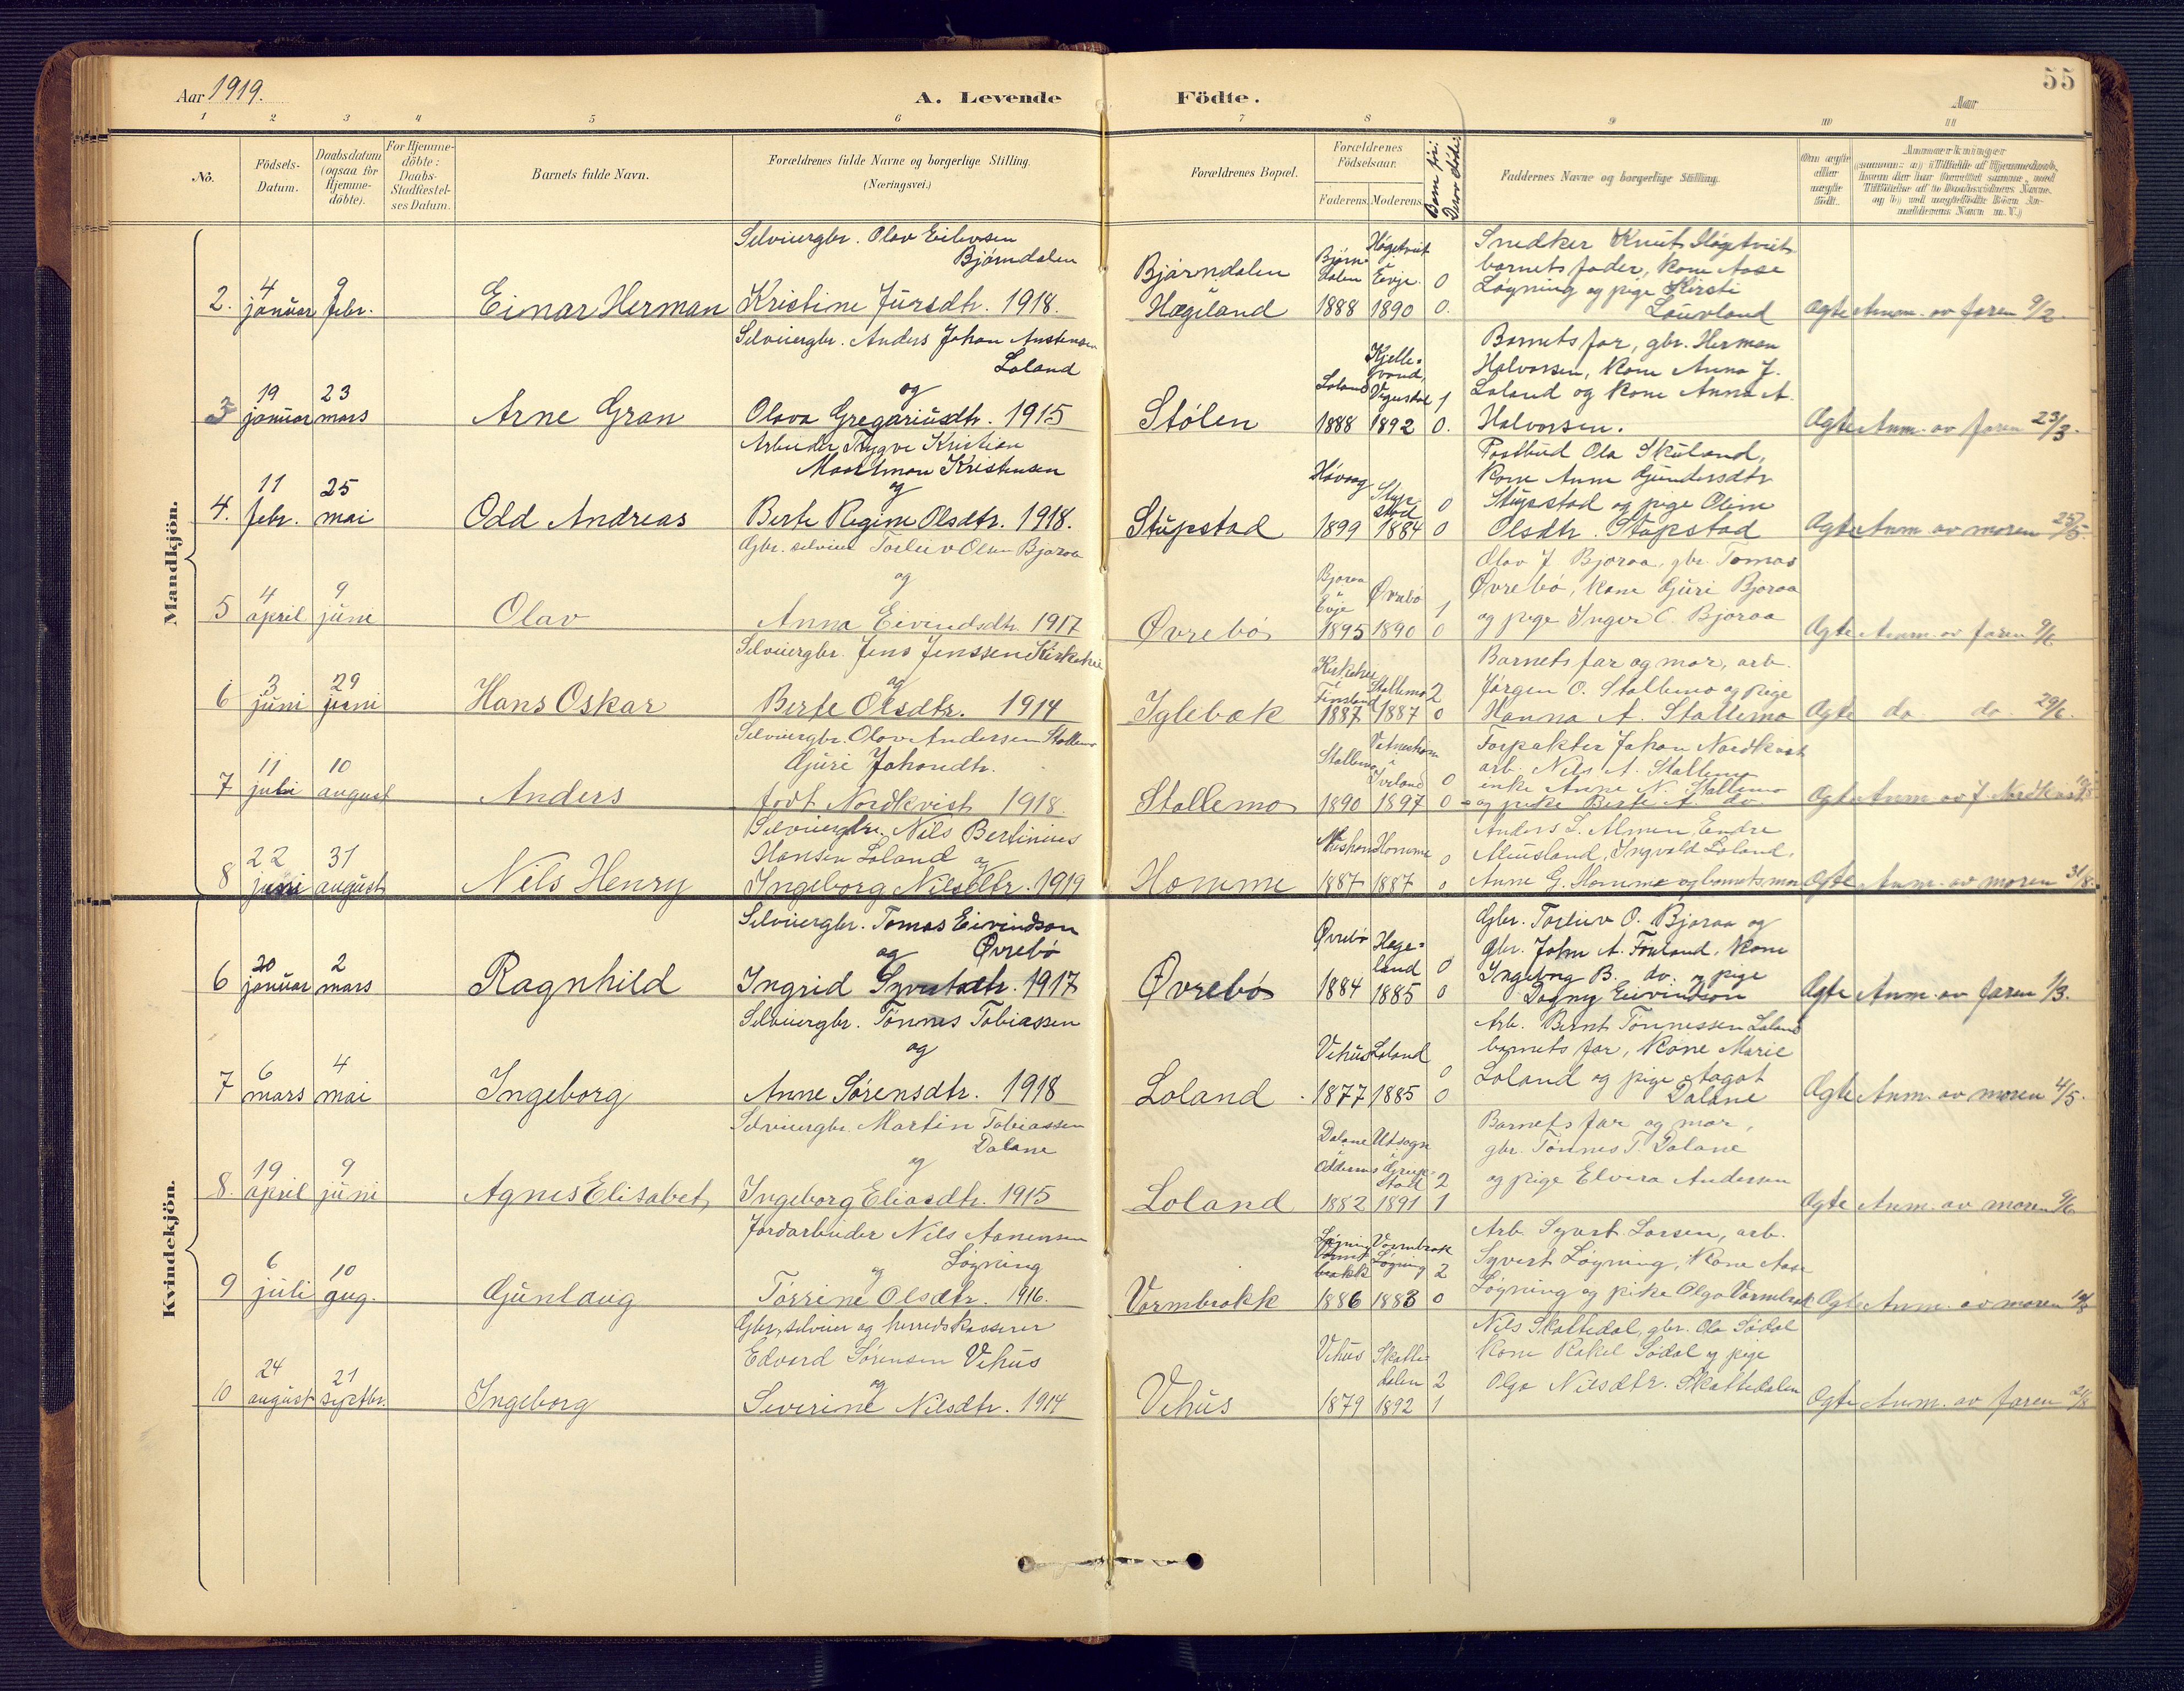 55
Aar 1919.
A. Levende Födte.
1 2 3 4 5 6 7 8 9 10 11
No.
Födsels-
Datum.
Daabsdatum
(ogsaa for
Hjemme-
döbte).
For Hjemme-
döbte:
Daabs-
Stadfæstel-
ses Datum.
Barnets fulde Navn.
Forældrenes fulde Navne og borgerlige Stilling.
(Næringsvei.)
Forældrenes Bopæl.
Forældrenes
Födselsaar.
Faderens. Moderens.
Faddernes Navne og borgerlige Stilling.
Mandkjön.
2.
4
januar
9
febr.
Einar Herman
Selveiergbr. Olav Eilevsen
Bjørndalen
Kristine Jursdtr. 1918.
Bjørndalen
Hægeland
Bjørn-
dalen
1888
Evje
1890
0
0.
Snedker Knut Høgetveit
barnets fader, kone Aase
Løgning og pige Kirsti
Lauvland
Ægte
Anm. av faren 9/2.
3
19
januar
23
mars
Arne Gran
Selveiergbr. Anders Johan Austensen
Loland
og
Olava Gregariusdtr. 1915
Stølen
Loland
1888
Vegusdal
1892
1
0.
Barnets far, gbr. Herman
Halvorsen, kone Anna J.
Loland og kone Anna A.
Halvorsen.
Ægte
Anm. av faren 23/3.
4.
11
febr.
25
mai
Odd Andreas
Arbeider Trygve Kristian
Kristensen
og
Berte Regine Olsdtr. 1918.
Stupstad
Høvaag
1899
Stup-
stad
1884
0
0
Postbud Ola Skuland,
kone Anne Gundersdtr
Stupstad og pige Oline
Olsdtr. Stupstad
Ægte
Anm. av moren 25/5.
5
4
april
9
june
Olav
Gbr. selveier Torleiv Olsen Bjoraa
og
Anna Eivindsdtr. 1917
Øvrebø
Bjoraa
i
Evje
1895
Øvrebø
1890
1
0
Olav J Bjoraa, gbr. Tomas
Øvrebø, kone Guri Bjoraa
og pige Inger C. Bjoraa
Ægte
Anm. av faren 9/6
6
3
juni
29
juni
Hans Oskar
Selveiergbr. Jens Jenssen Kirkehei
og
Berte Olsdtr. 1914
Iglebæk
Kirkehei
i
Finsland
1887
Stallemo
1887
2
0
Barnets far og mor, arb.
Jørgen O. Stallemo og pige
Hanna A. Stallemo
Ægte
do do 29/6.
7
11
juli
10
august
Anders
Selveiergbr. Olav Andersen Stallemo
Guri Johandtr.
født Nordkvist 1918.
Stallemo
Stallemo
1890
i
Iveland
1897
0
0
Forpakter Johan Nordkvist
arb. Nils A. Stallemo
enke Anne N. Stallemo
og pike Berte A. do.
Ægte
Anm. av J. Nordkvist 10/8
8
22
juni
31
august
Nils Henry
Selveiergbr. Nils Bertinius
Hansen Loland og
Ingeborg Nilsdtr. 1919
Homme
1887
Homme
1887
0
0
Anders L. Almen, Endre
Ingvald Loland,
Anne G. Homme og barnets mor
Ægte
Anm. av moren 31/8.
Kvindekjön.
6
30
januar
2
mars
Ragnhild
Selveiergbr. Tomas Eivindson
og Øvrebø
Ingrid Syvertsdtr. 1917
Øvrebø
Øvrebø
1884
Hæge-
land
1885
0
0
Gbr. Torleiv O. Bjoraa og
gbr. John A. Frøland, kone
Ingeborg B. do. og pige
Dagny Eivindson
Ægte
Anm. av faren 1/3.
7
6
mars
4
mai
Ingeborg
Selveiergbr. Tønnes Tobiassen
og
Anne Sørensdtr. 1918
Loland
Vehus
1877
Loland
1885
0
0
Arb. Bernt Tønnessen Loland
barnets far, kone Marie
Loland og pige Aagot
Dalane
Ægte
Anm. av moren 4/5.
8.
19
april
9
juni
Agnes Elisabet
Selveiergbr. Martin Tobiassen
Dalane
og
Ingeborg Eliasdtr. 1915
Loland
Dalane
i
Oddernes
1882
1891
2
1
Barnets far og mor,
gbr. Tønnes T. Dalane
og pige Elvira Andersen
Ægte
Anm. av moren 9/6
9
6
juli
10
aug.
Gunlaug
Jordarbeider Nils Aanensen
Løgning
og
Torrine Olsdtr. 1916.
Vormbrokk
Løgning
1886
Vormbrok
Løgning
1883
2
0
Arb. Syvert Larsen, arb.
Syvert Løgning, kone Aase
Løgning og pike Olga Vormbrok
Ægte
Anm. av moren 10/8
10
24
august
21
septbr.
Ingeborg
Gbr, selveier og herredskasserer
Edvard Sørensen Vehus
og
Severine Nilsdtr. 1914
Vehus
Vehus
1879
Skatte-
dalen
1892
2
1
Nils Skattedal, gbr. Ola Sødal
kone Rakel Sødal og pige
Olga Nilsdtr. Skattedalen
Ægte
Anm. av faren